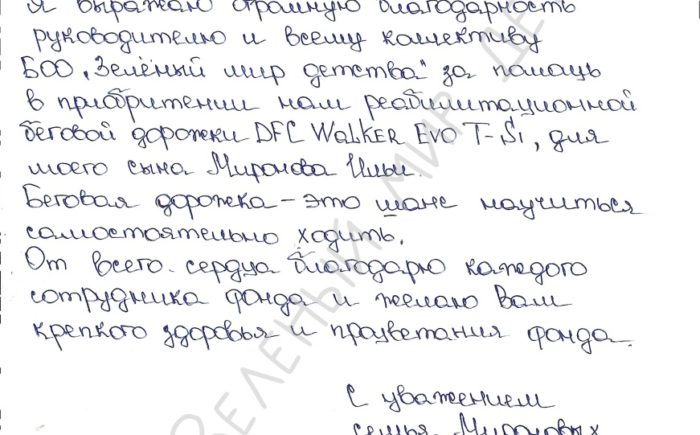 Я выражаю огромную благодарность
руководителю и всему коллективу
БОО „Зелёный мир детства" за помощь
в приобритении нам реабилитационной
беговой дорожки DFC WALKER EVO T-Si, для
моего сына Миронова Ильи.
Беговая дорожка – это шанс научиться
самостоятельно ходить.
От всего сердца благодарю каждого
сотрудника фонда и желаю Вам
крепкого здоровья и процветания фонда.
С уважением
семья Мироновых
ЗЕЛЕНЫЙ МИР ДЕ